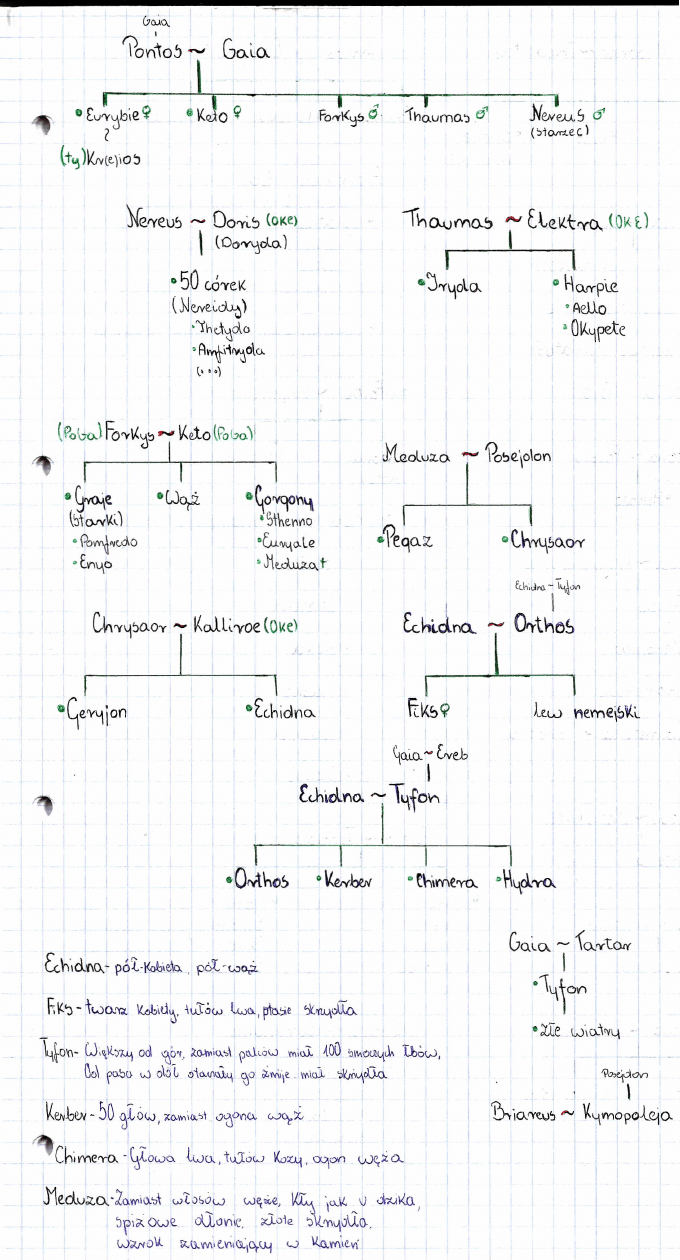 Gaia
Pontos ~ Gaia
• Eurybie ♀ • Keto ♀ Forkys ♂ Thaumas ♂ Nereus ♂
(starzec)
(ty) Kr(e)ios
Nereus ~ Doris (OKE) Thaumas ~ Elektra (OKE)
(Doryda)
• 50 córek • Iryda • Harpie
(Nereidy) • Aello
• Thetyda • Okypete
• Amfitryda
(...)
(PoGa) Forkys ~ Keto (PoGa) Meduza ~ Posejdon
• Graje • Wąż • Gorgony
(Starki) • Stheno
• Pemfredo • Euryale • Pegaz • Chrysaor
• Enyo • Meduza †
Echidna ~ Tyfon
Chrysaor ~ Kalliroe (OKE) Echidna ~ Orthos
• Geryjon • Echidna Fiks ♀ lew nemejski
Gaia ~ Ereb
Echidna ~ Tyfon
• Orthos • Kerber • Chimera • Hydra
Gaia ~ Tartar
Echidna - pół-kobieta, pół-wąż
• Tyfon
Fiks - twarz kobiety, tułów lwa, ptasie skrzydła
• złe wiatry
Tyfon - Większy od gór, zamiast palców miał 100 smoczych łbów,
Od pasa w dół otaczały go żmije. miał skrzydła
Posejdon
Kerber - 50 głów, zamiast ogona wąż Briareus ~ Kymopoleja
Chimera - Głowa lwa, tułów kozy, ogon węża
Meduza - Zamiast włosów węże, kły jak u dzika,
spiżowe dłonie, złote skrzydła.
wzrok zamieniający w kamień